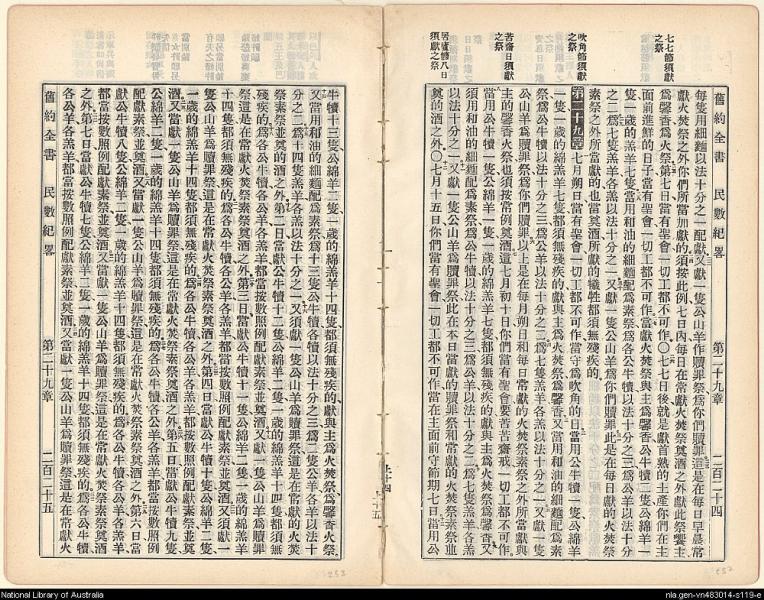 舊約全書 民數紀畧 第二十九章 二百二十四
七七節須獻
之祭
吹角節須獻
之祭
苦齋日須獻
之祭
居廬節八日
須獻之祭
每隻用細麵以法十分之一配獻又獻一隻公山羊作贖罪祭爲你們贖罪這是在每日早晨常
獻火焚祭之外你們所當加獻的須按此例七日內每日在常獻火焚祭奠酒之外獻此祭饗主
爲馨香火祭第七日當有聖會一切工都不可作〇七七日後就是獻首熟的主產你們在主
面前進鮮的日子當有聖會一切工都不可作當獻火焚祭與主爲馨香公牛犢二隻公綿羊一
隻一歲的羔羊七隻當用和油的細麵配爲素祭爲各公牛犢以法十分之三爲公羊以法十分
之二爲七隻羔羊各羔以法十分之一又獻一隻公山羊爲你們贖罪此是在每日獻的火焚祭
素祭之外所當獻的也當奠酒所獻的犧牲都須無殘疾的
第二十九章 七月朔日當有聖會一切工都不可作當守爲吹角的日當用公牛犢一隻公綿羊
一隻一歲的羔羊七隻都須無殘疾的獻與主爲火焚祭爲馨香又當用和油的細麵配爲素
祭爲公牛犢以法十分之三爲公羊以法十分之二爲七隻羔羊各羔以法十分之一又獻一隻
公山羊爲你們贖罪以上是在每月朔日和每日常獻的火焚祭素祭奠酒之外所當獻與
主的馨香火祭也須按常例奠酒這七月初十日你們當有聖會要苦苦齋戒一切工都不可作
當用公牛犢一隻公綿羊一隻一歲的綿羔羊七隻都須無殘疾的獻與主爲火焚祭爲馨香又
須用和油的細麵配爲素祭爲公牛犢以法十分之三爲公羊以法十分之二爲七隻羔羊各羔
以法十分之一又獻一隻公山羊爲贖罪祭此在本日當獻的贖罪祭和常獻的火焚祭素祭並
奠的酒之外〇七月十五日你們當有聖會一切工都不可作當在主面前守節期七日當用公
牛犢十三隻公綿羊二隻一歲的綿羔羊十四隻都須無殘疾的獻與主爲火焚祭爲馨香火祭
又當用和油的細麵配爲素祭爲十三隻公牛犢各犢以法十分之三爲二隻公羊各羊以法十
分之二爲十四隻羔羊各羔以法十分之一又須獻一隻公山羊爲贖罪祭這是在常獻的火焚
祭素祭並奠的酒之外第二日當獻公牛犢十二隻公綿羊二隻一歲的綿羔羊十四隻都須無
殘疾的爲各公牛犢各公羊各羔羊都當按數照例配獻素祭並奠酒又獻一隻公山羊爲贖罪
祭這是在常獻火焚祭素祭奠酒之外第三日當獻公牛犢十一隻公綿羊二隻一歲的綿羔羊
十四隻都須無殘疾的爲各公牛犢各公羊各羔羊都當按數照例配獻素祭並奠酒又須獻一
隻公山羊爲贖罪祭這是在常獻火焚祭素祭奠酒之外第四日當獻公牛犢十隻公綿羊二隻
一歲的綿羔羊十四隻都須無殘疾的爲各公牛犢各公羊各羔羊都當按數照例配獻素祭並奠
酒又當獻一隻公山羊爲贖罪祭這是在常獻火焚祭素祭奠酒之外第五日當獻公牛犢九隻
公綿羊二隻一歲的綿羔羊十四隻都須無殘疾的爲各公牛犢各公羊各羔羊都當按數照例
配獻素祭並奠酒又當獻一隻公山羊爲贖罪祭這是在常獻火焚祭素祭奠酒之外第六日當
獻公牛犢八隻公綿羊二隻一歲的綿羔羊十四隻都須無殘疾的爲各公牛犢各公羊各羔羊
都當按數照例配獻素祭並奠酒又獻一隻公山羊爲贖罪祭這是在常獻火焚祭素祭奠酒
之外第七日當獻公牛犢七隻公綿羊二隻一歲的綿羔羊十四隻都須無殘疾的爲各公牛犢
各公羊各羔羊都當按數照例配獻素祭並奠酒又當獻一隻公山羊爲贖罪祭這是在常獻火
舊約全書 民數紀畧 第二十九章 二百二十五
National Library of Australia
nla.gen-vn483014-s119-e